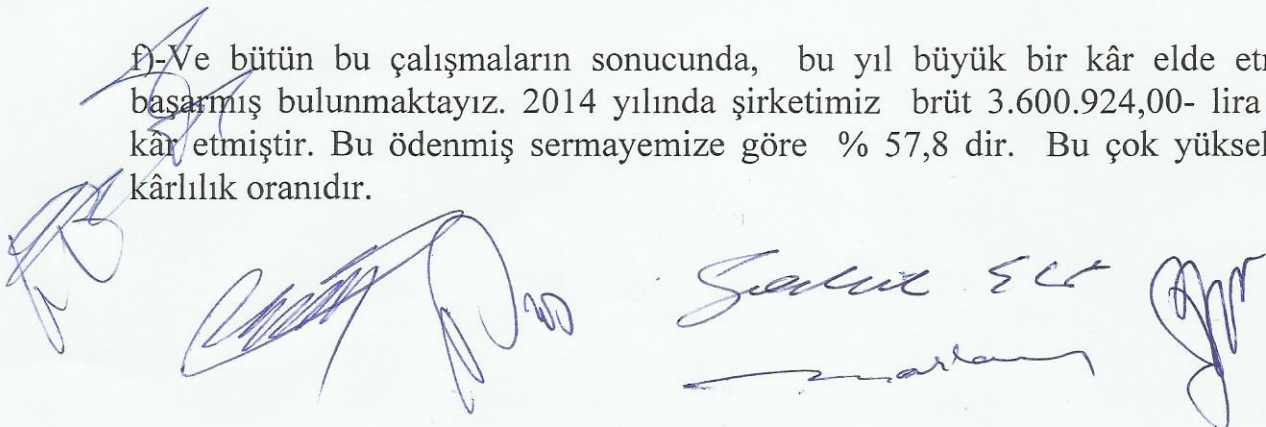 f)-Ve bütün bu çalışmaların sonucunda, bu yıl büyük bir kâr elde
başarmış bulunmaktayız. 2014 yılında şirketimiz brüt 3.600.924,00- lira
kâr etmiştir. Bu ödenmiş sermayemize göre % 57,8 dir. Bu çok
kârlılık oranıdır.